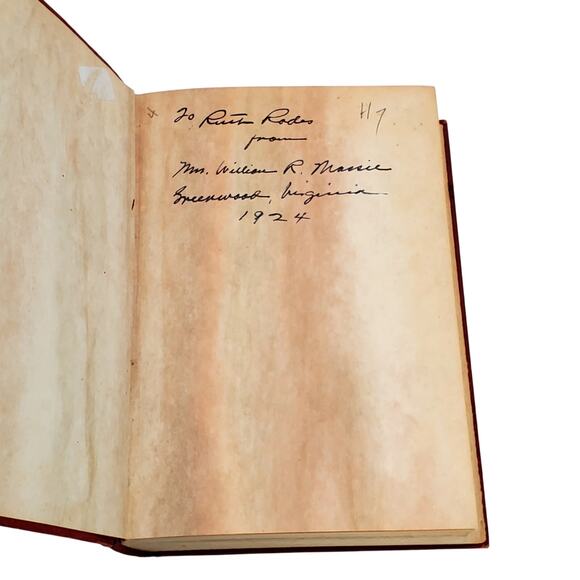 To Ruth Rodes
from
Mrs. William R. Massie
Greenwood, Virginia
1924